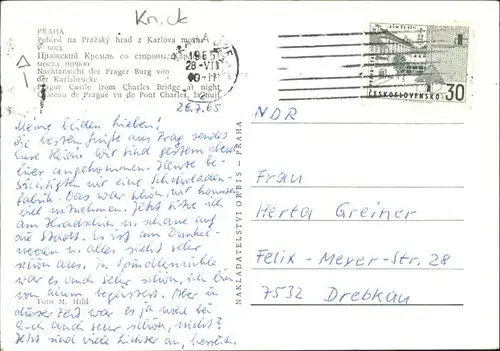 Knick
PRAHA
Pohled na Pražský hrad z Karlova mostu
v noci
Пражский Кремль со стороны Карлова
моста ночью
Nachtansicht der Prager Burg von
der Karlsbrücke
Prague Castle from Charles Bridge at night
Château de Prague vu de Pont Charles, la nuit
1965
28.VII
ČESKOSLOVENSKO
30
26.7.65
Meine beiden Lieben!
Die besten Grüße aus Prag sendet
Eure Heidi. Wir sind gestern abend
hier angekommen. Heute be-
sichtigten wir eine Schokoladen-
fabrik. Das war schön, wir konnten
viel mitnehmen. Jetzt sitze ich
am Hradschin u. schaue auf
die Stadt. Es ist am Dunkel-
werden u. alles sieht sehr
schön aus. In Spindlermühle
war es auch sehr schön, ich bin
von allem begeistert. Aber in
dieser Zeit war es ja wohl bei
Euch auch sehr schön, nicht?
Jetzt sind viele Lichter an, herrlich.
Foto M. Hild
NAKLADATELSTVÍ ORBIS - PRAHA
NDR
Frau
Herta Greiner
Felix - Meyer-Str. 28
7532 Drebkau